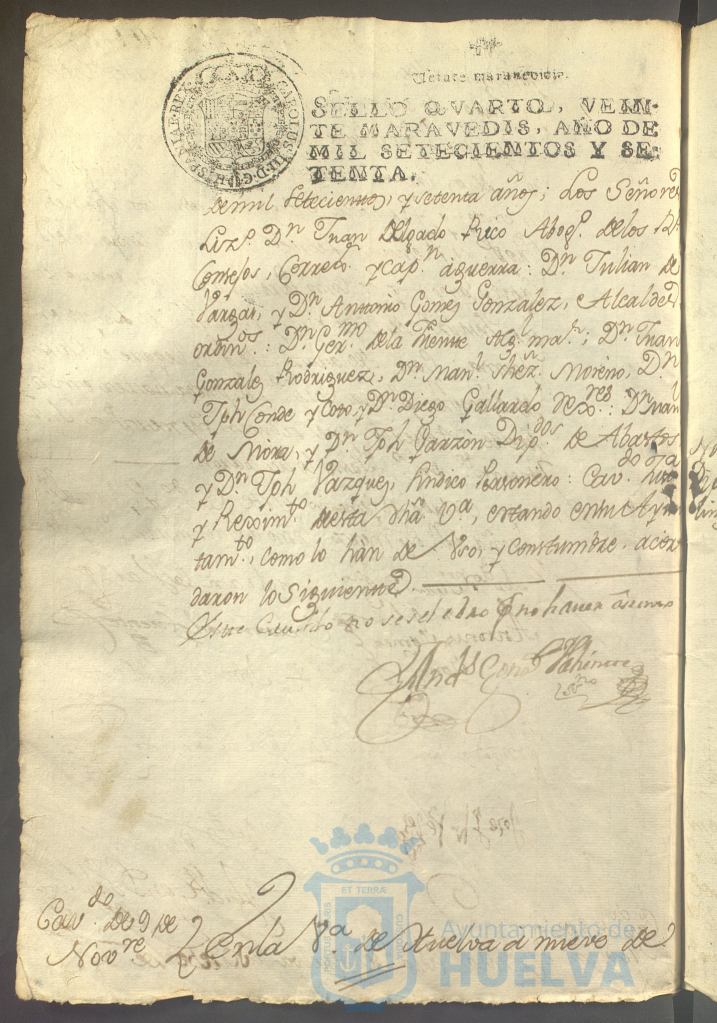 Veinte maravedis.
SELLO QVARTO, VEIN-
TE MARAVEDIS, AÑO DE
MIL SETECIENTOS Y SE-
TENTA.
CAROLUS III D G HISPANIAE REX
de mil setecientos, y setenta años; Los Señores
Lizdo. Dn. Juan Delgado Rico Abogo. de los Rs.
Consejos, Corregor. y Capn. aguerra: Dn. Julian de
Vargas, y Dn. Antonio Gomez Gonzalez, Alcaldes
ordinos.: Dn. Germo. de la Fuente Alg. mar.; Dn. Juan
Gonzalez Rodriguez, Dn. Manl. Shez. Moreno, Dn.
Jph Conde y Coto, y Dn. Diego Gallardo Rexres.: Dn. Juan
de Mora, y Dn. Jph Garzon Dipdos. de Abastos
y Dn. Jph Vazquez, Sindico Personero: Cavdo. Justa.
y Reximto. desta dha. Va., estando en su Ayun
tamto., como lo hán de Vso, y Constumbre, acor
daron lo Siguiente
Este Cavildo no se selebro
Cavdo. de 9 de
Novre.
En la Va. de Huelva á nueve de
ET TERRÆ
Ayuntamiento de
HUELVA